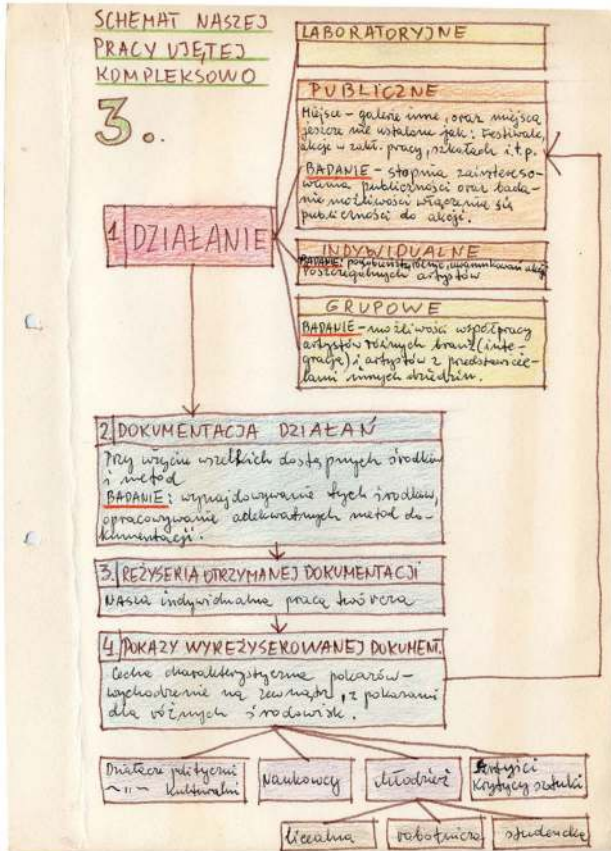 SCHEMAT NASZEJ
PRACY UJĘTEJ
KOMPLEKSOWO
3.
LABORATORYJNE
PUBLICZNE
Miejsce – galerie inne, oraz miejsca
jeszcze nie ustalone jak: Festiwale,
akcje w zakł. pracy, szkołach i.t.p.
BADANIE – stopnia zaintereso-
wania publiczności oraz bada-
nie możliwości włączenia się
publiczności do akcji.
1. DZIAŁANIE
INDYWIDUALNE
BADANIE: uwarunkowań akcji
Poszczególnych artystów
GRUPOWE
BADANIE – możliwości współpracy
artystów różnych branż (inte-
gracje) i artystów z przedstawicie-
lami innych dziedzin.
2. DOKUMENTACJA DZIAŁAŃ
Przy użyciu wszelkich dostępnych środków
i metod
BADANIE: wynajdowywanie tych środków,
opracowywanie adekwatnych metod do-
kumentacji.
3. REŻYSERIA OTRZYMANEJ DOKUMENTACJI
NASZA indywidualna praca twórcza
4. POKAZY WYREŻYSEROWANEJ DOKUMENT.
Cecha charakterystyczna pokazów –
wychodzenie na zewnątrz, z pokazami
dla różnych środowisk.
Działacze polityczni
~"~ Kulturalni
Naukowcy
Młodzież
Artyści
Krytycy sztuki
licealna
robotnicza
studencka